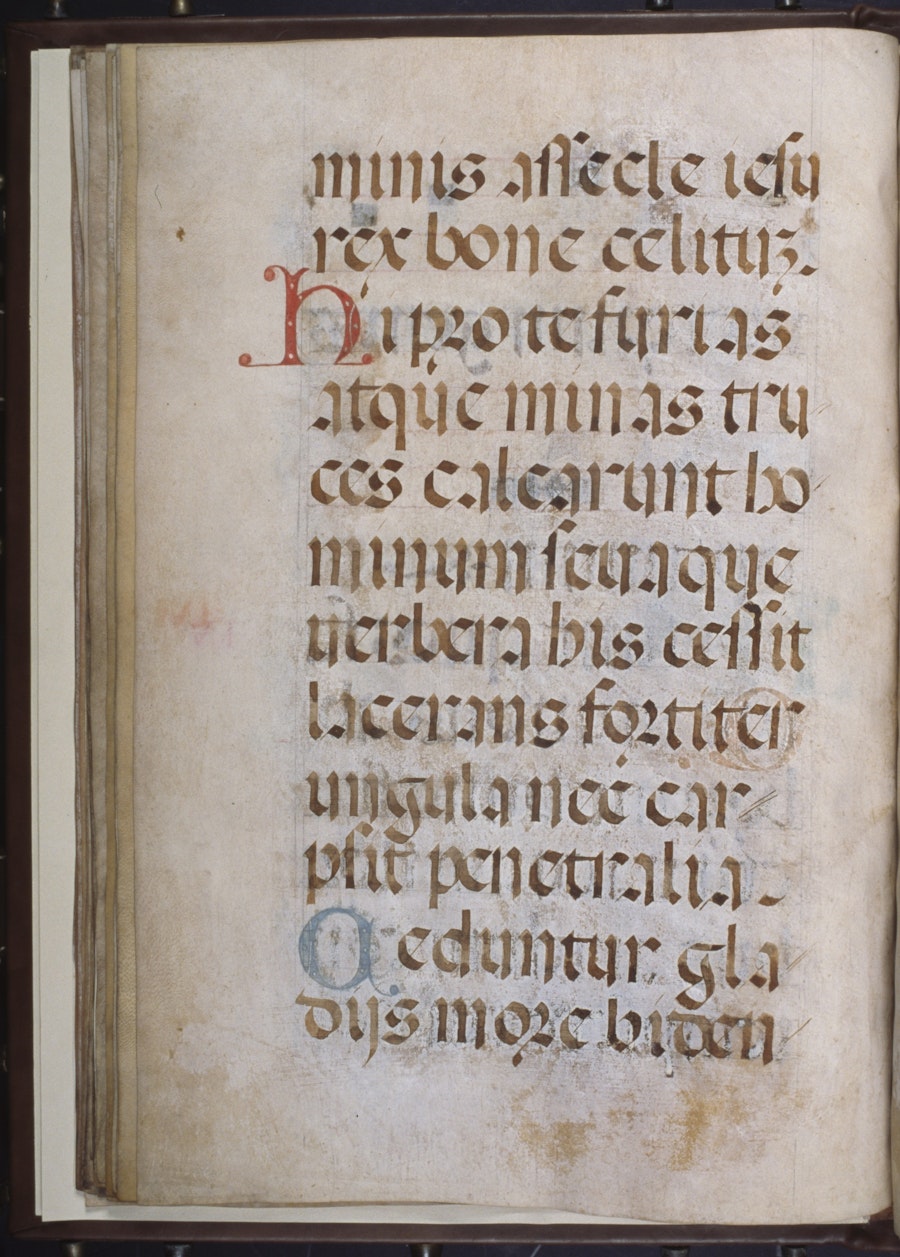 minis assecle iesu
rex bone celituʒ.
Hi pro te furias
atque minas tru
ces calcarunt ho
minum seuaque
uerbera his cessit
lacerans fortiter
ungula nec car
psit penetralia.
Ceduntur gla
dijs more biden